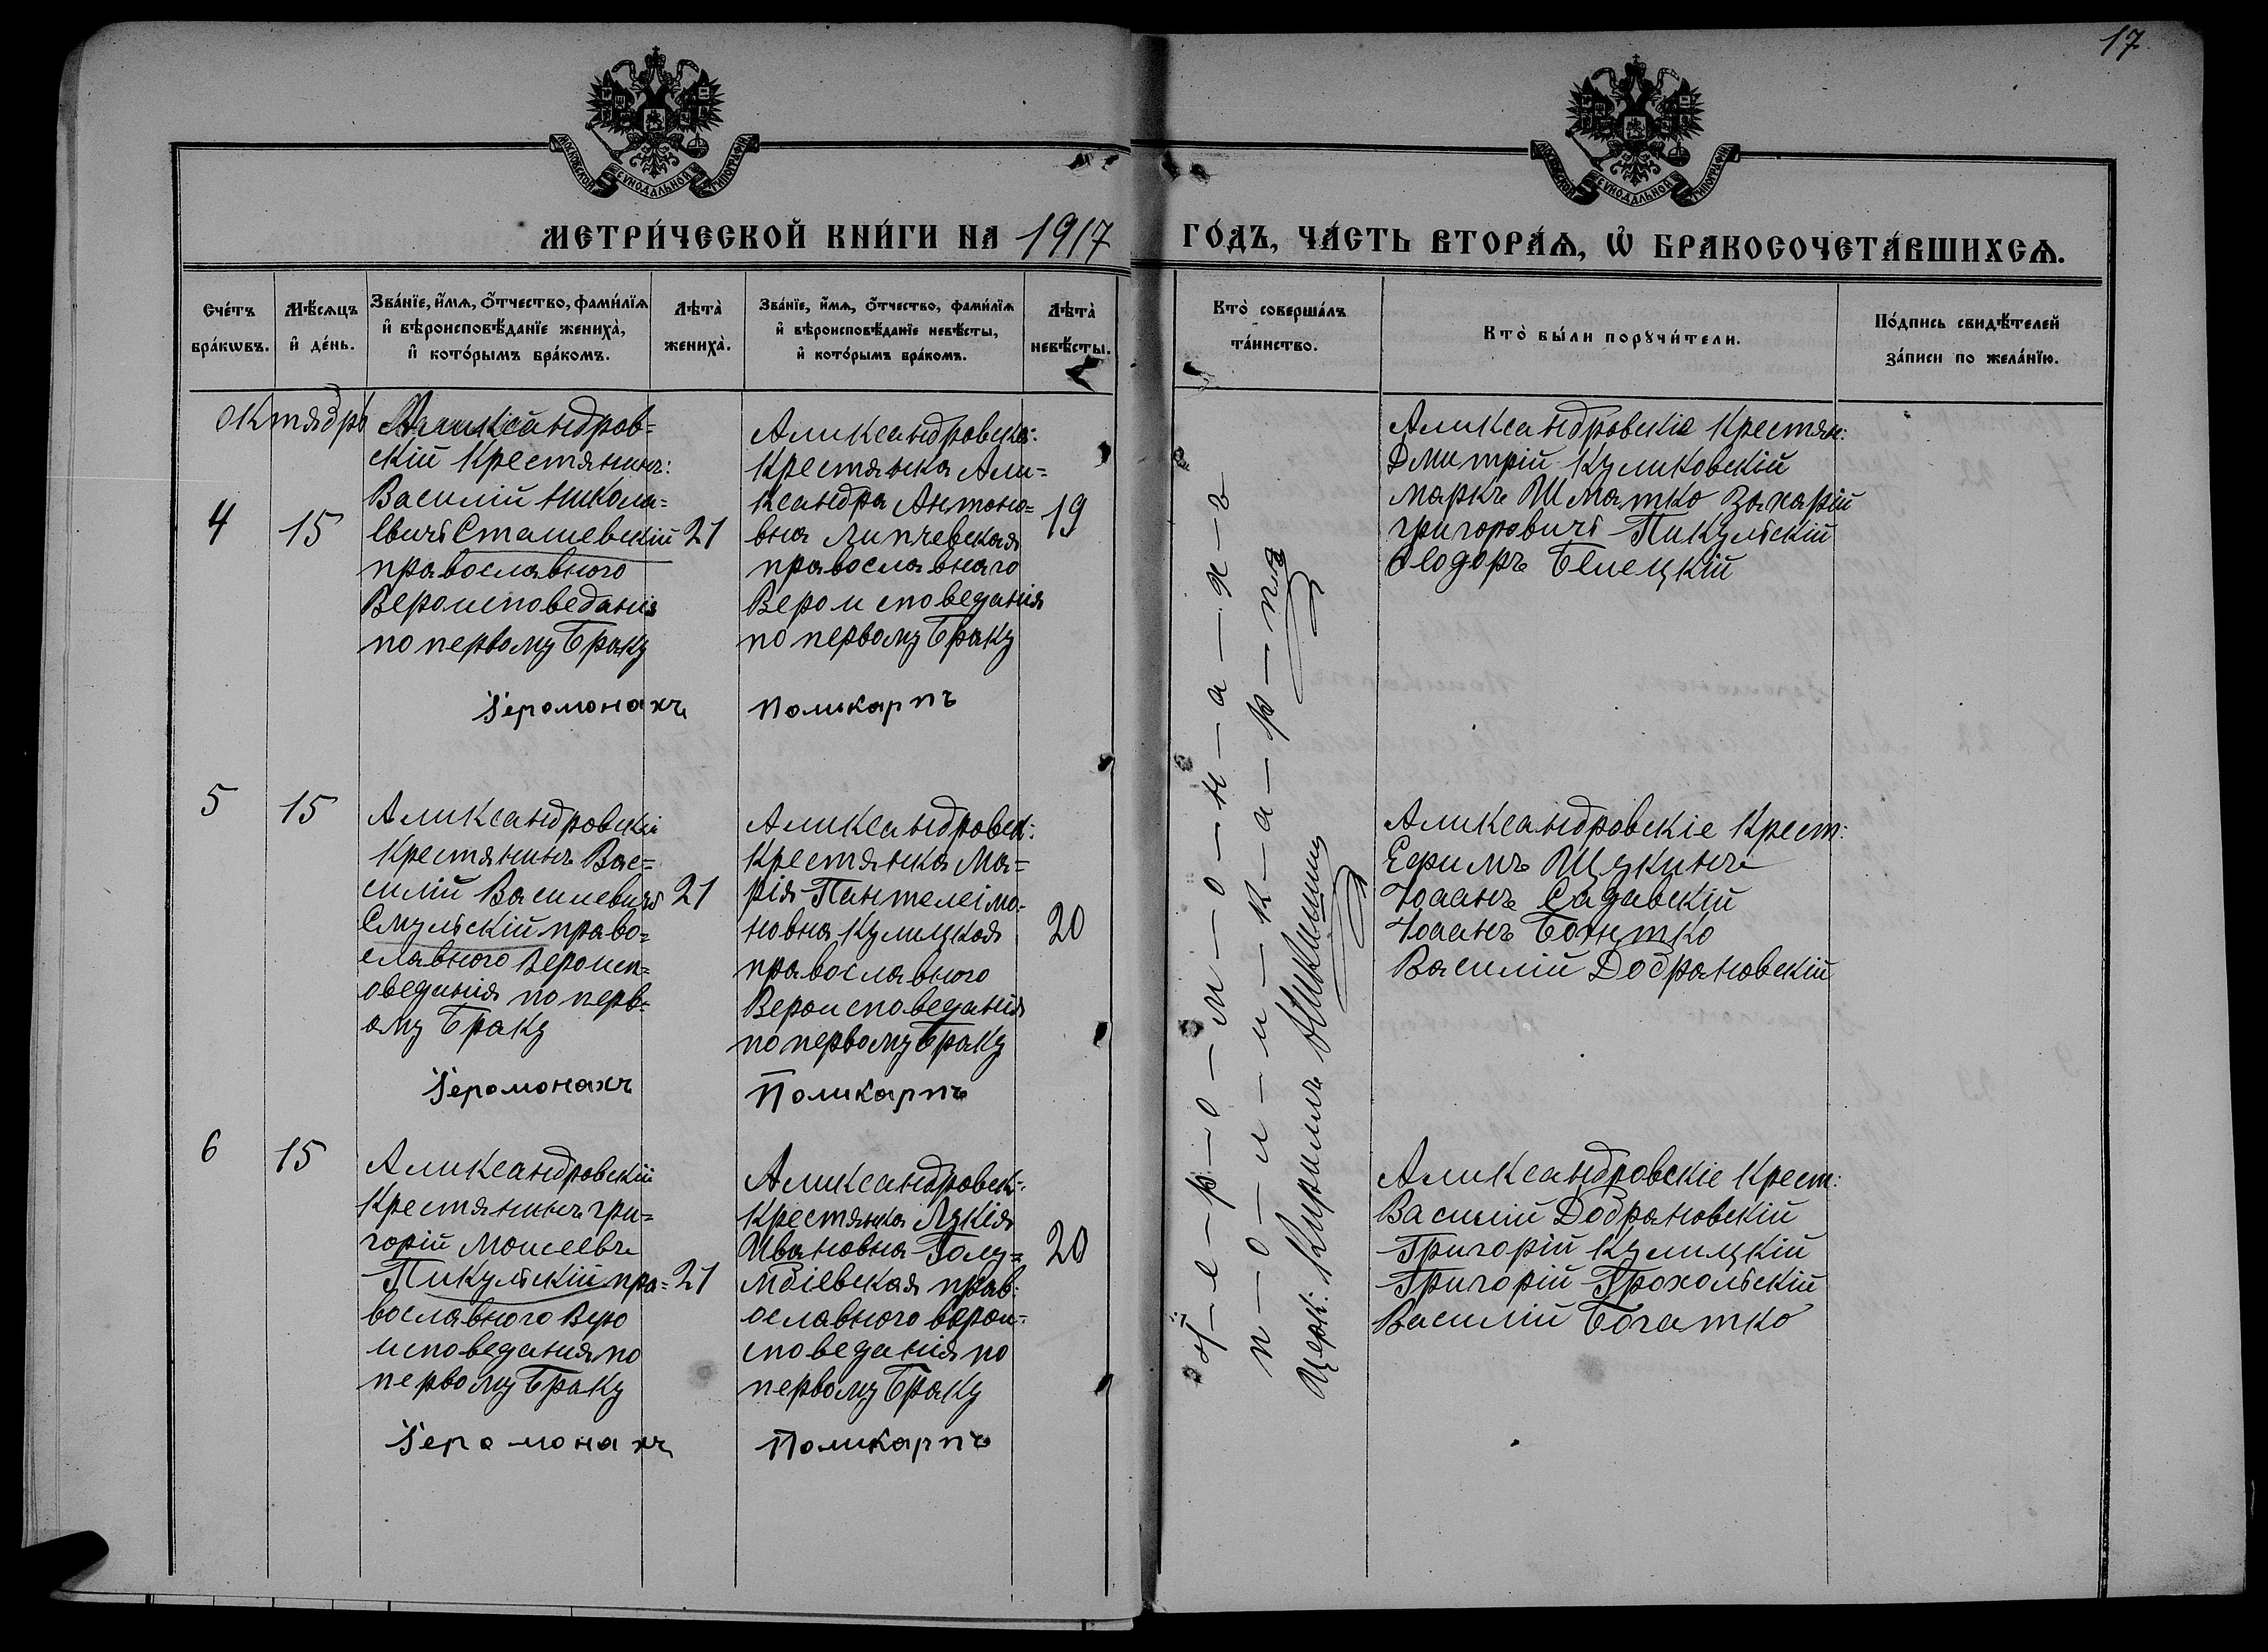 17
МОСКОВСКОЙ СѴНОДАЛЬНОЙ ТИПОГРАФІИ
МОСКОВСКОЙ СѴНОДАЛЬНОЙ ТИПОГРАФІИ
МЕТРИ́ЧЕСКОЙ КНИ́ГИ НА 1917 ГО́ДЪ, ЧА́СТЬ ВТОРА́Ѧ, Ѡ҆ БРАКОСОЧЕТА́ВШИХСѦ.
Сче́тъ
бра́кѡвъ.
Мѣ́сѧцъ
и҆ де́нь.
Зва́нїе, и҆́мѧ, о҆́тчество, фами́лїѧ
и҆ вѣроисповѣ́данїе жениха̀,
и҆ кото́рымъ бра́комъ.
Лѣта̀
жениха̀.
Зва́нїе, и҆́мѧ, о҆́тчество, фами́лїѧ
и҆ вѣроисповѣ́данїе невѣ́сты,
и҆ кото́рымъ бра́комъ.
Лѣта̀
невѣ́сты.
Кто̀ соверша́лъ
та́инство.
Кто̀ бы́ли порꙋчи́тели.
По́дпись свидѣ́телей
за́писи по жела́нїю.
октябрь
4
15
Аликсандров=
скій Крестянинъ:
Василій Никола=
евичъ Сташевскій
православного
Вероисповеданія
по первому Браку
21
Аликсандровск:
Крестянка Али=
ксандра Антоно=
вна Липчевская
православнаго
Вероисповедания
по первому Браку
19
Аликсандровскіе Крестян:
Дмитрій Куликовскій
Маркъ Шматко Захарій
григоровичъ Пикульскій
Феодоръ Белецкій
Іеромонахъ Поликарпъ
5
15
Аликсандровскій
Крестянинъ Вас=
силій Василевичъ
Смульскій право=
славного Вероисп=
оведания по перв=
ому Браку
21
Аликсандровск:
Крестянка Ма=
рія Пантелеімо=
новна Кулицкая
православного
Вероисповеданія
по первому Браку
20
Аликсандровскіе Крест:
Ефимъ Щукинъ
Іоаннъ Садавскій
Іоаннъ Богатко
Василій Добрановскій
Іеромонахъ Поликарпъ
6
15
Аликсандровскій
Крестянинъ гри=
горій Моисеевъ
Пикульскій пра=
вославного Веро
исповедания по
первому Браку
21
Аликсандровск:
Крестянка Лукія
Ивановна Голу=
мбіевская прав:
ославного верои=
споведания по
первому Браку
20
Аликсандровскіе Крест:
Василій Добрановскій
Григорій Кулицкій
Григорій Грохольскій
Василій Богатко
Іеромонахъ Поликарпъ
І-е-р-о-м-о-н-а-х-ъ
п-о-л-и-к-а-р-пъ
Церк: Кирилъ